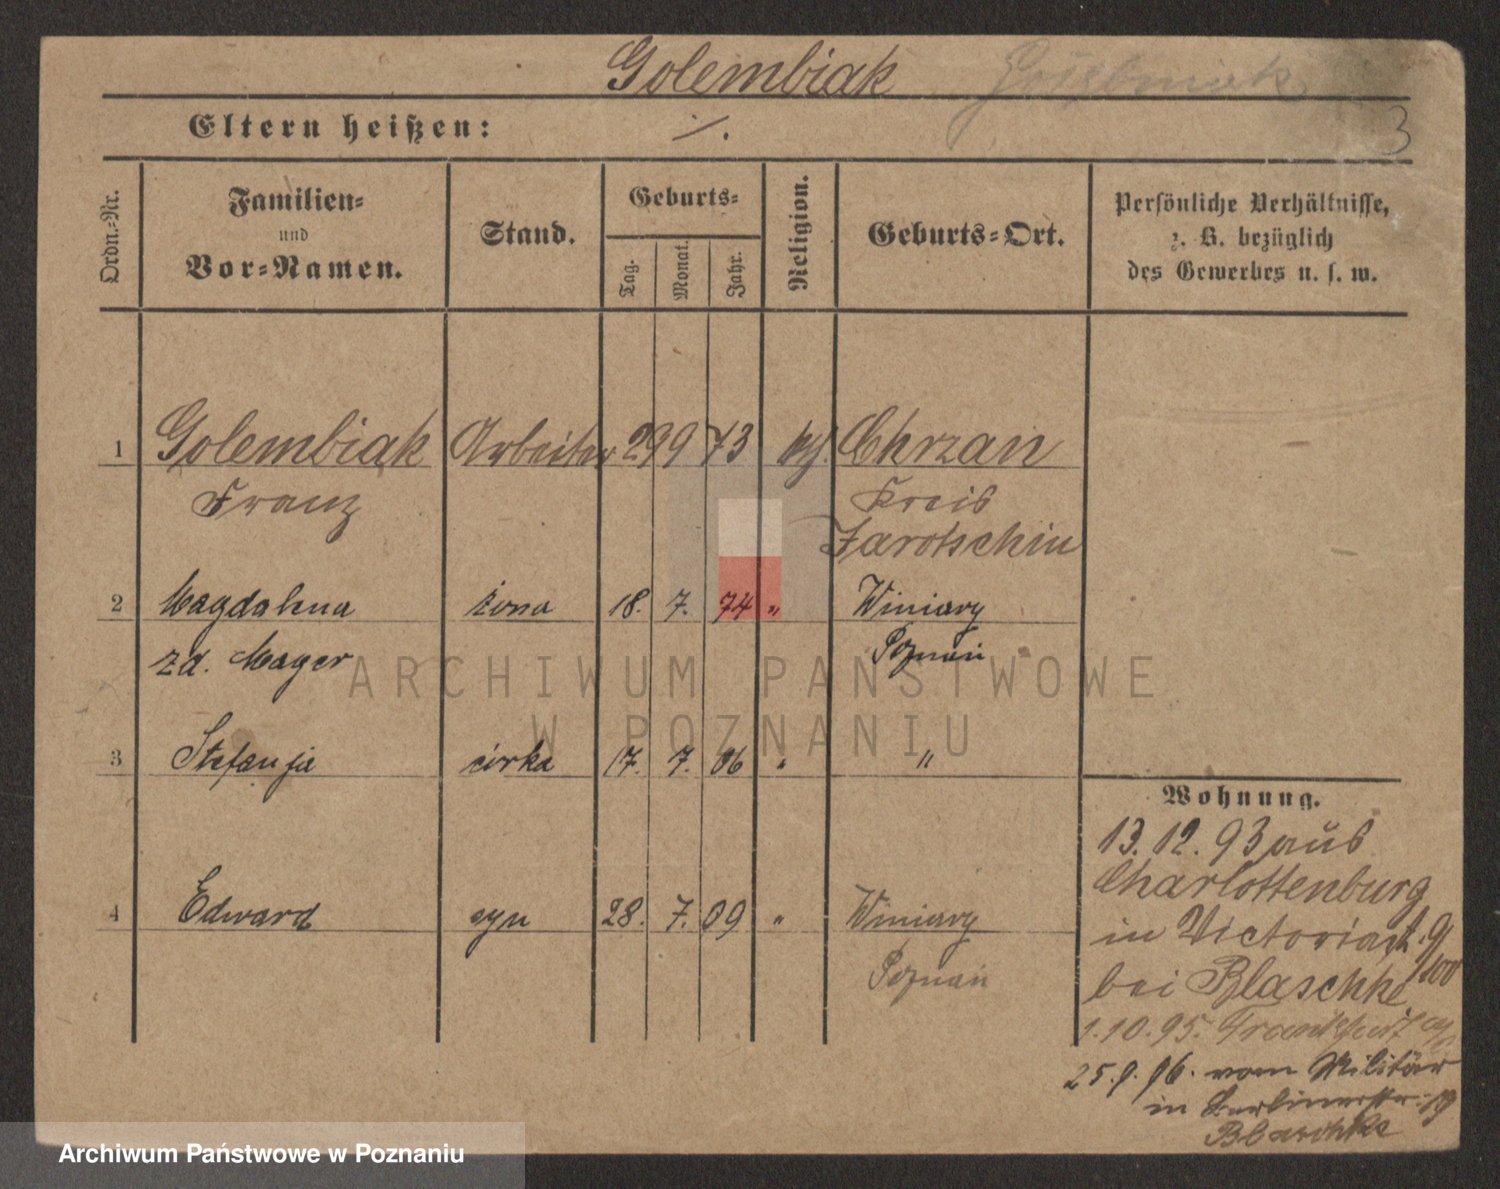 Golembiak Gołębniak
Eltern heißen: ./.
3
Ordn.-Nr.
Familien-
und
Vor-Namen.
Stand.
Geburts-
Tag.
Monat.
Jahr.
Religion.
Geburts-Ort.
Persönliche Verhältnisse,
z. B. bezüglich
des Gewerbes u. s. w.
1 Golembiak Arbeiter 29 9 73 kth. Chrzan
Franz Kreis
Jarotschin
2 Magdalena żona 18. 7. 74 " Winiary
zd. Mager Poznań
ARCHIWUM PAŃSTWOWE
W POZNANIU
3 Stefanja córka 17. 7. 06 " "
Wohnung.
13. 12. 93 aus
Charlottenburg
4 Edward syn 28. 7. 09 " Winiary
Poznań
in Victoriastr. 9
bei Blaschke
1. 10. 95. Frankfurt
25. 9. 96. vom Militär
in Berlinerstr. 19
Blaschke
Archiwum Państwowe w Poznaniu